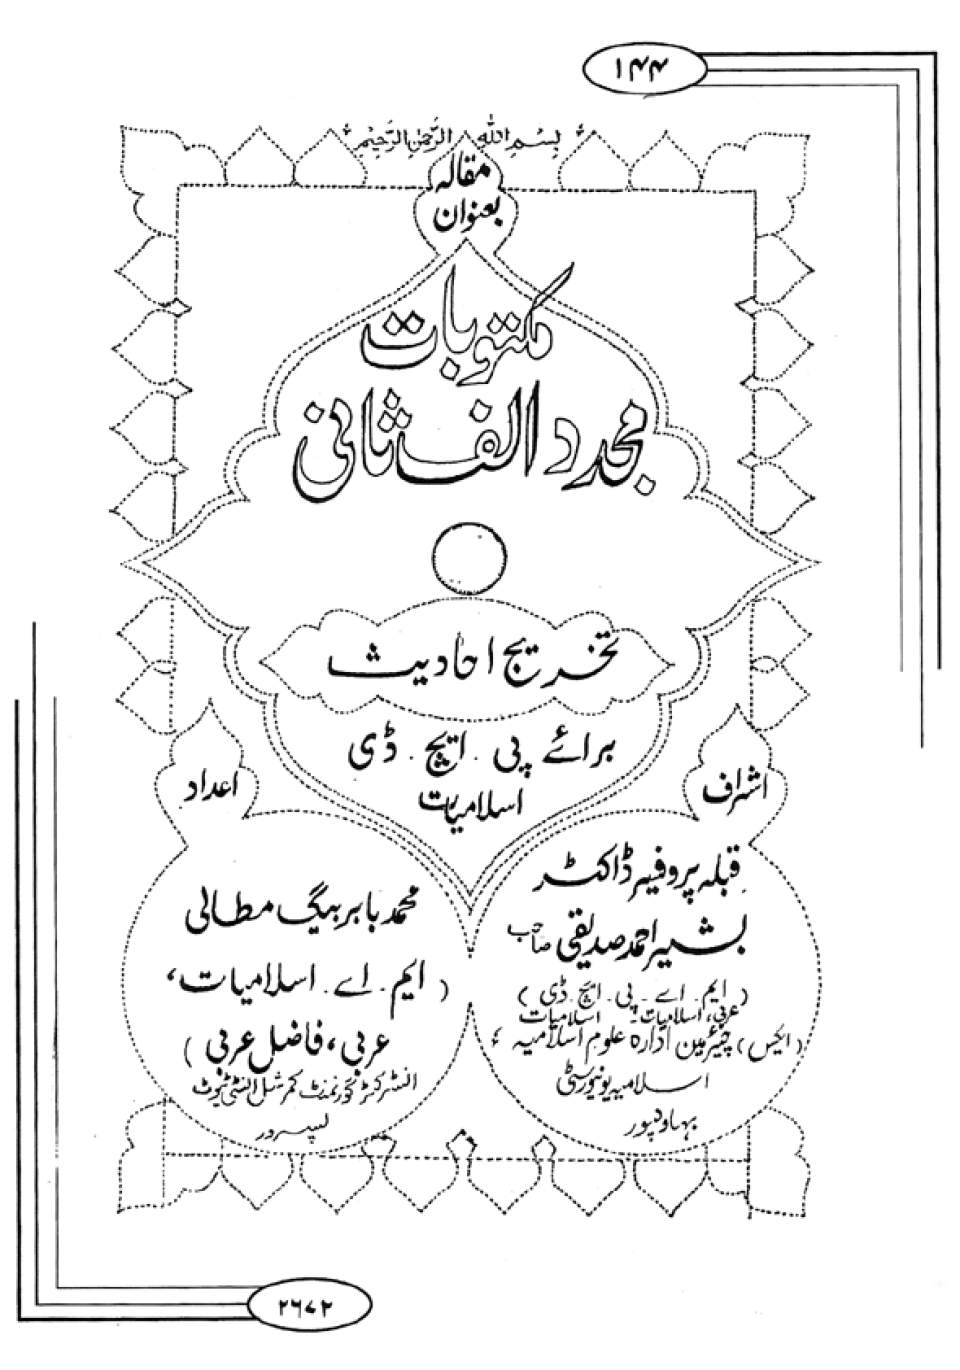 ۱۴۴
بِسْمِ اللهِ الرَّحْمٰنِ الرَّحِيْمِ
مقالہ
بعنوان
مکتوبات
مجدد الف ثانی
تخریج احادیث
برائے پی . ایچ . ڈی
اسلامیات
اشراف
قبلہ پروفیسر ڈاکٹر
بشیر احمد صدیقی صاحب
( ایم . اے - پی . ایچ . ڈی )
عربی، اسلامیات، اسلامیات
(ایکس) چیئرمین ادارہ علوم اسلامیہ ؛
اسلامیہ یونیورسٹی
بہاولپور
اعداد
محمد بابر بیگ مطالی
( ایم . اے . اسلامیات،
عربی، فاضل عربی )
انسٹرکٹر گورنمنٹ کمرشل انسٹی ٹیوٹ
پسرور
۲۶۷۲